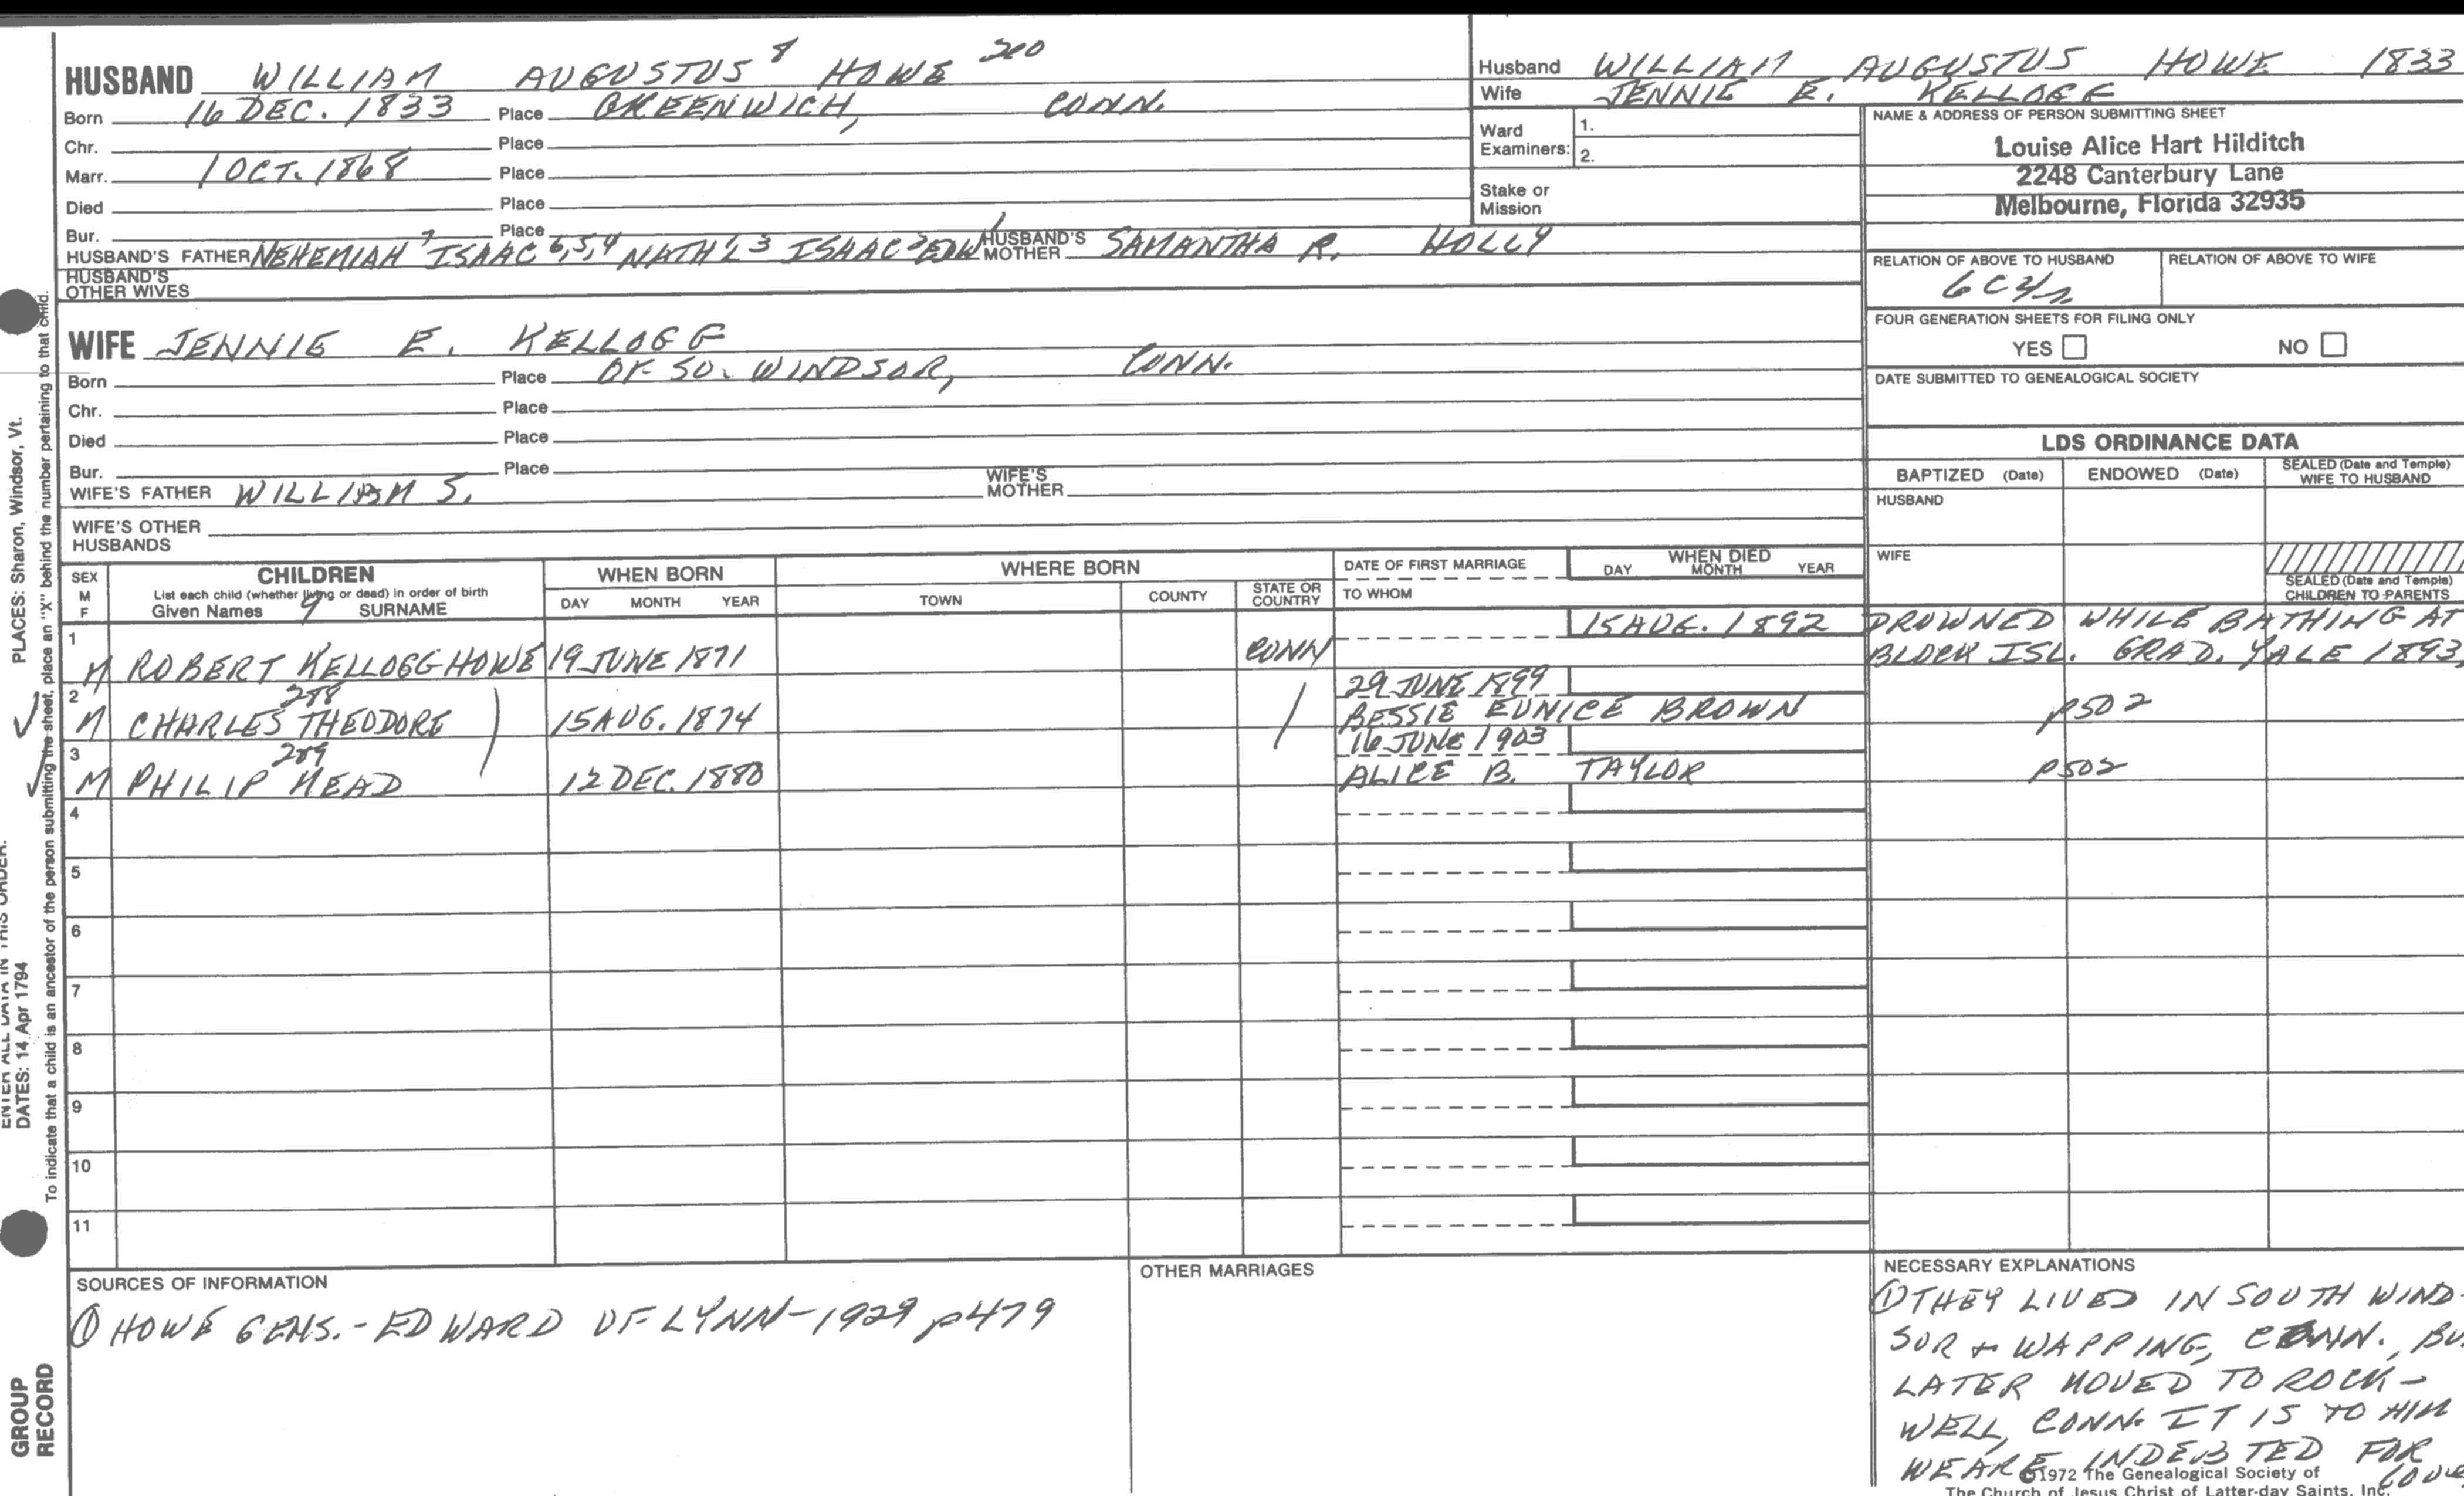 HUSBAND WILLIAM AUGUSTUS 8 HOWE 200
Born 16 DEC. 1833 Place GREENWICH, CONN.
Chr. Place
Marr. 1 OCT. 1868 Place
Died Place
Bur. Place
HUSBAND'S FATHER NEHEMIAH 7 ISAAC 6,5,4 NATH'L 3 ISAAC 2 EDW 1 HUSBAND'S MOTHER SAMANTHA R. HOLLY
HUSBAND'S OTHER WIVES
WIFE JENNIE E. KELLOGG
Born Place OF SO. WINDSOR, CONN.
Chr. Place
Died Place
Bur. Place
WIFE'S FATHER WILLIAM S. WIFE'S MOTHER
WIFE'S OTHER HUSBANDS
Husband WILLIAM AUGUSTUS HOWE 1833
Wife JENNIE E. KELLOGG
Ward Examiners: 1.
2.
Stake or Mission
NAME & ADDRESS OF PERSON SUBMITTING SHEET
Louise Alice Hart Hilditch
2248 Canterbury Lane
Melbourne, Florida 32935
RELATION OF ABOVE TO HUSBAND RELATION OF ABOVE TO WIFE
FOUR GENERATION SHEETS FOR FILING ONLY
YES NO
DATE SUBMITTED TO GENEALOGICAL SOCIETY
LDS ORDINANCE DATA
BAPTIZED (Date) ENDOWED (Date) SEALED (Date and Temple) WIFE TO HUSBAND
HUSBAND
WIFE
SEALED (Date and Temple) CHILDREN TO PARENTS
SEX M F CHILDREN WHEN BORN WHERE BORN DATE OF FIRST MARRIAGE WHEN DIED
List each child (whether living or dead) in order of birth
Given Names 9 SURNAME DAY MONTH YEAR TOWN COUNTY STATE OR COUNTRY TO WHOM DAY MONTH YEAR
1 M ROBERT KELLOGG HOWE 19 JUNE 1871 CONN 15 AUG. 1892 DROWNED WHILE BATHING AT
BLOCK ISL. GRAD. YALE 1893,
2 288 29 JUNE 1899
M CHARLES THEODORE 15 AUG. 1874 BESSIE EUNICE BROWN p502
3 289 16 JUNE 1903
M PHILIP MEAD 12 DEC. 1880 ALICE B. TAYLOR p502
4
5
6
7
8
9
10
11
SOURCES OF INFORMATION
① HOWE GENS.- EDWARD OF LYNN-1929 p479
OTHER MARRIAGES
NECESSARY EXPLANATIONS
① THEY LIVED IN SOUTH WIND-
SOR + WAPPING, CONN., BU
LATER MOVED TO ROCK-
WELL, CONN. IT IS TO HIM
WE ARE INDEBTED FOR
©1972 The Genealogical Society of
The Church of Jesus Christ of Latter-day Saints, Inc.
PLACES: Sharon, Windsor, Vt.
ENTER ALL DATA IN THIS ORDER:
DATES: 14 Apr 1794
To indicate that a child is an ancestor of the person submitting the sheet, place an "X" behind the number pertaining to that child.
GROUP
RECORD